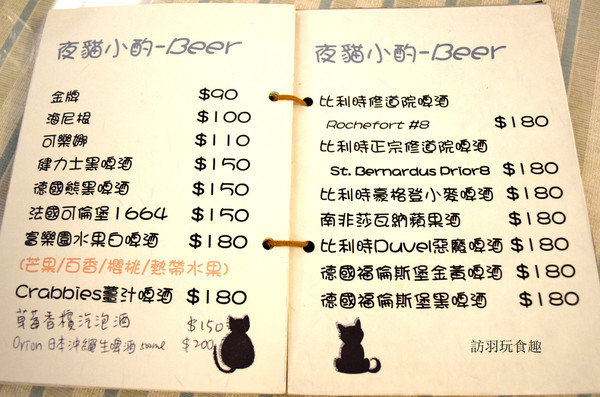 夜貓小酌-Beer
金牌 $90
海尼根 $100
可樂娜 $110
健力士黑啤酒 $150
德國熊黑啤酒 $150
法國可倫堡1664 $150
富樂園水果白啤酒 $180
(芒果/百香/櫻桃/熱帶水果)
Crabbies薑汁啤酒 $180
草莓香檳汽泡酒 $150
Orion 日本沖繩生啤酒 500ml $200
夜貓小酌-Beer
比利時修道院啤酒
Rochefort #8 $180
比利時正宗修道院啤酒
St. Bernardus Prior8 $180
比利時豪格登小麥啤酒 $180
南非莎瓦納蘋果酒 $180
比利時Duvel惡魔啤酒 $180
德國福倫斯堡金黃啤酒 $180
德國福倫斯堡黑啤酒 $180
訪羽玩食趣